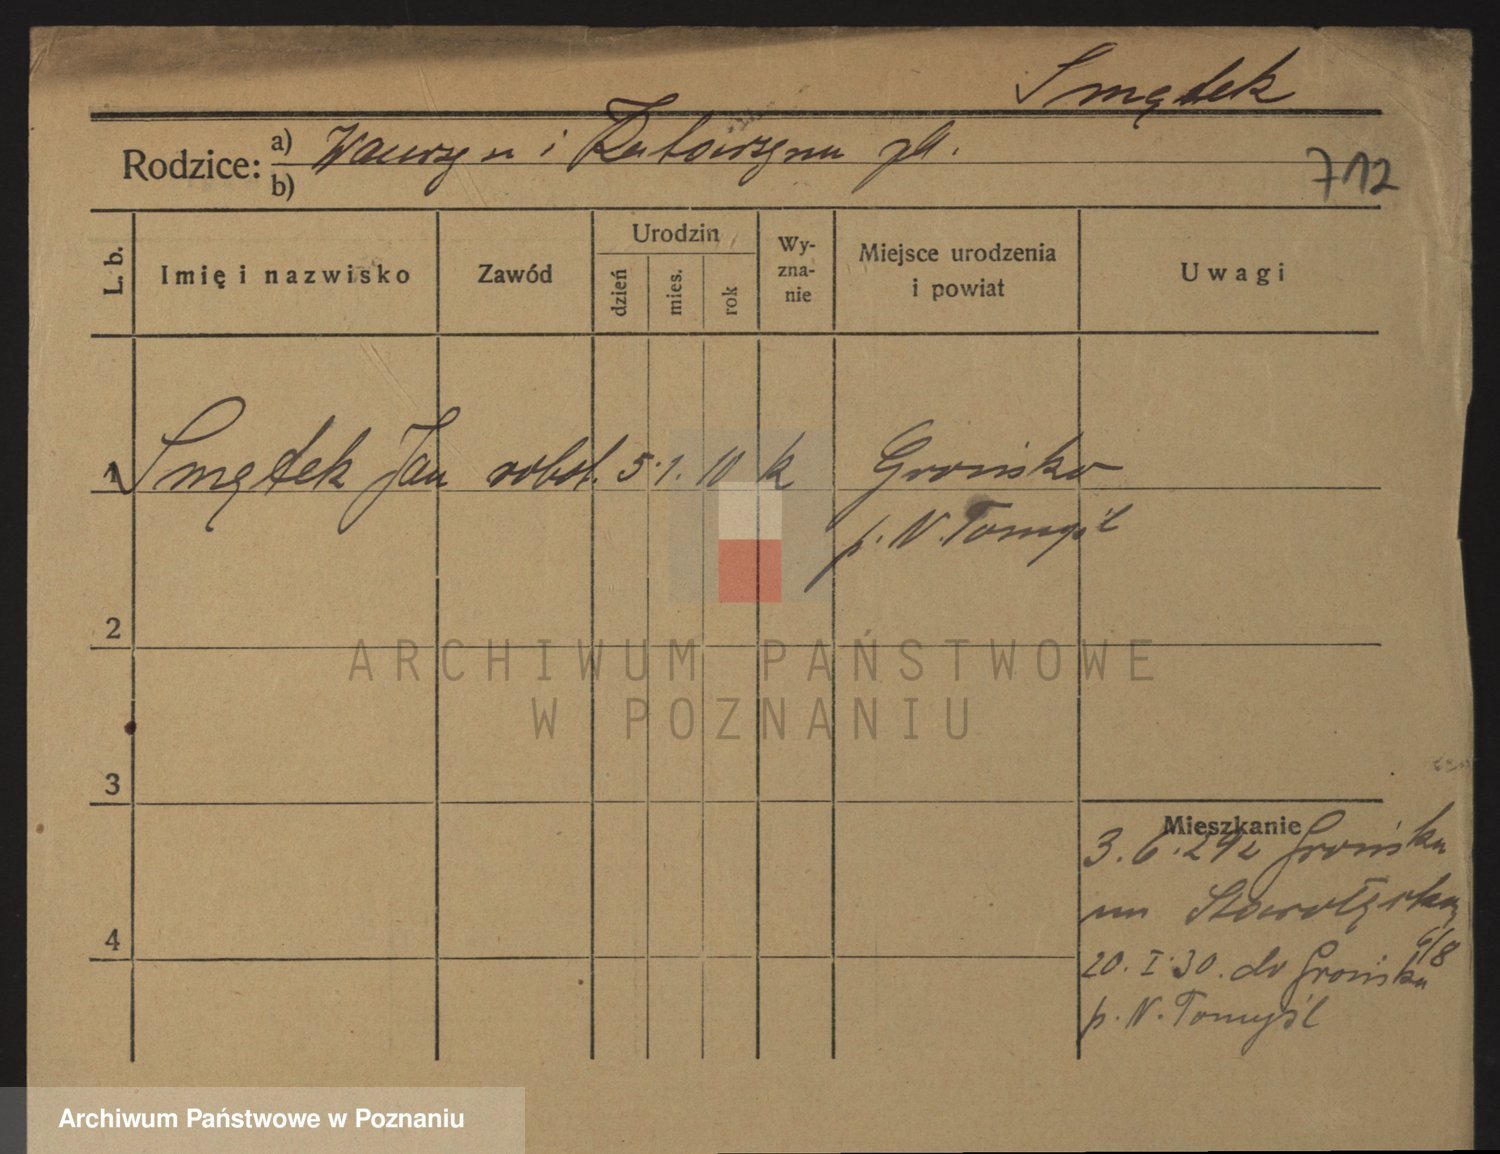 Smętek
Rodzice: a) Wawrzyn i Katarzyna
b)
712
L. b. Imię i nazwisko Zawód Urodzin dzień mies. rok Wyznanie Miejsce urodzenia i powiat Uwagi
1 Smętek Jan robot. 5. 1. 10 k Grońsko
p. N. Tomyśl
2
3
Mieszkanie
3. 6. 29 z Grońska
na
4
6/8
20. I. 30. do Grońska
p. N. Tomyśl
ARCHIWUM PAŃSTWOWE
W POZNANIU
Archiwum Państwowe w Poznaniu